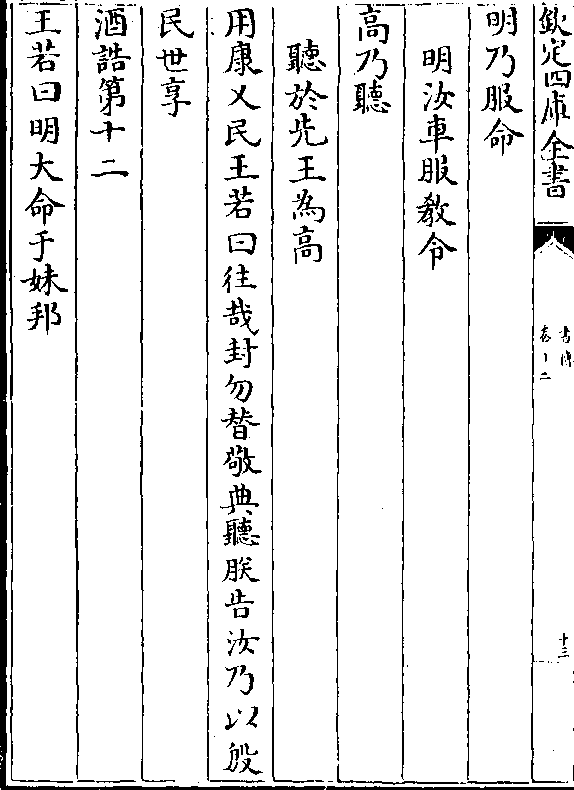 欽定四庫全書
書傳
卷十二
十三
明乃服命
明汝車服教令
高乃聽
聽於先王為高
用康乂民王若曰往哉封勿替敬典聽朕告汝乃以殷
民世享
酒誥第十二
王若曰明大命于妹邦